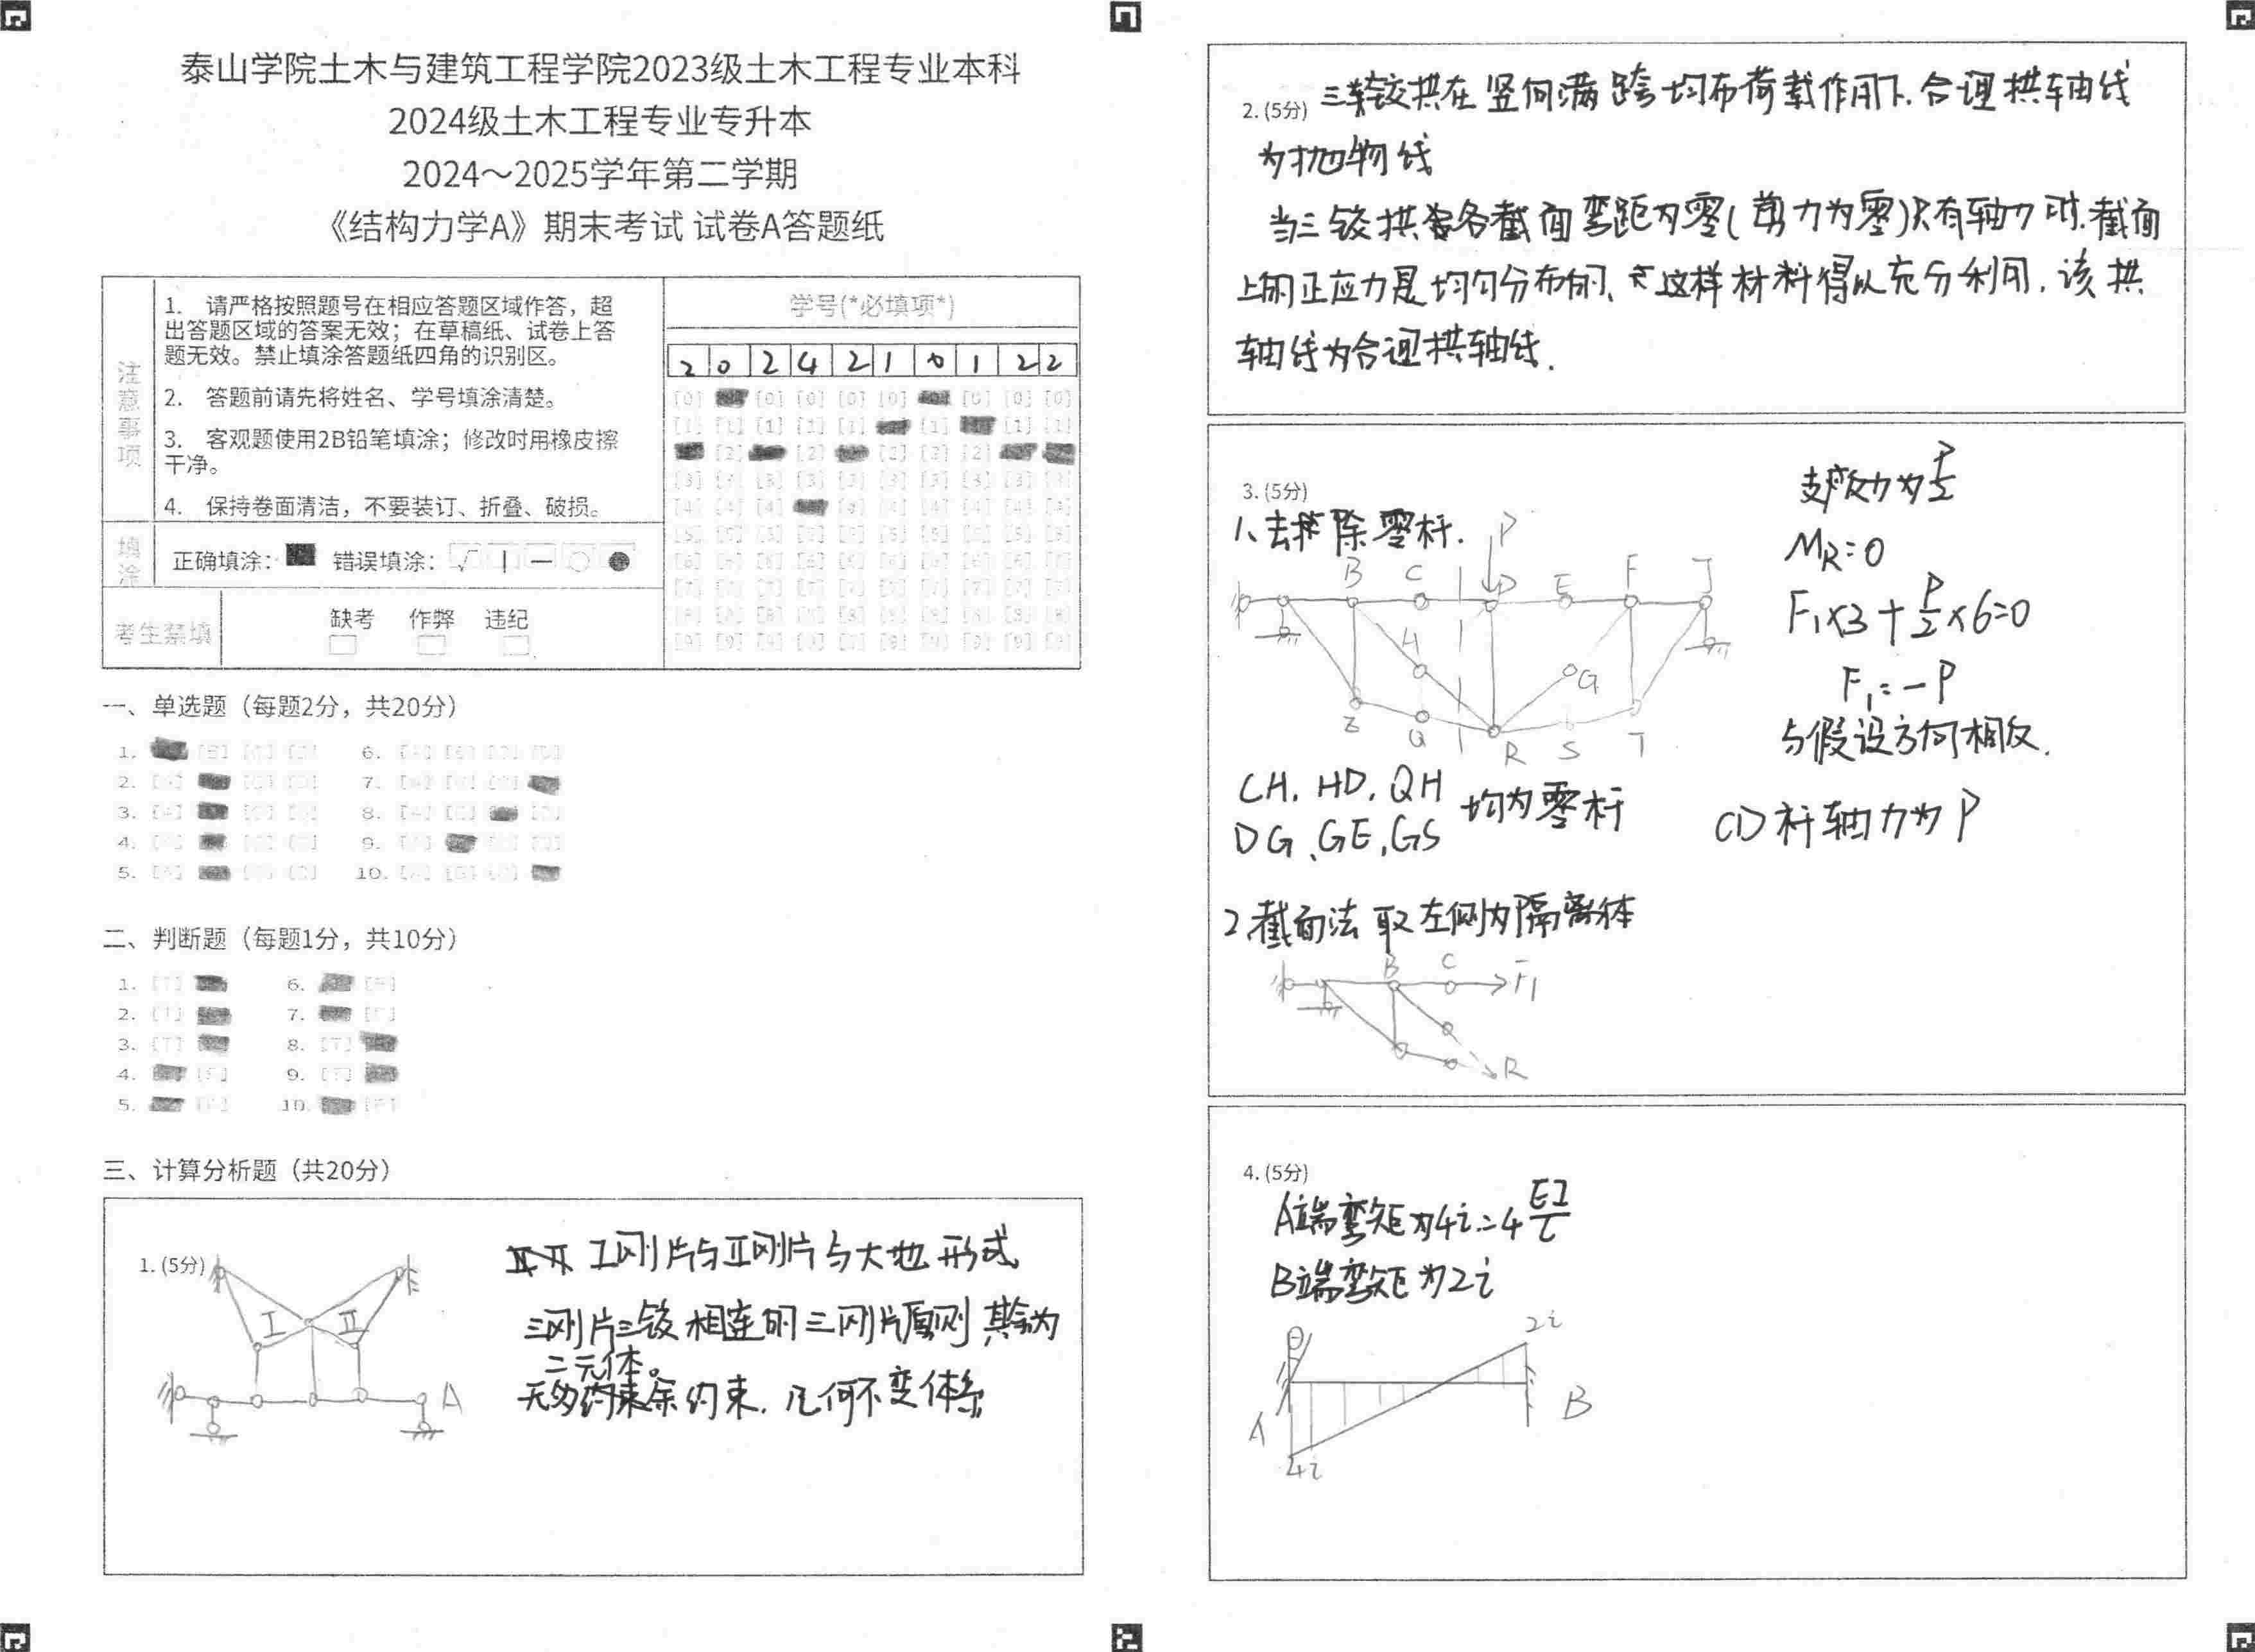 泰山学院土木与建筑工程学院2023级土木工程专业本科
2024级土木工程专业专升本
2024～2025学年第二学期
《结构力学A》期末考试 试卷A答题纸
注意事项
1. 请严格按照题号在相应答题区域作答，超
出答题区域的答案无效；在草稿纸、试卷上答
题无效。禁止填涂答题纸四角的识别区。
2. 答题前请先将姓名、学号填涂清楚。
3. 客观题使用2B铅笔填涂；修改时用橡皮擦
干净。
4. 保持卷面清洁，不要装订、折叠、破损。
填涂
正确填涂： 错误填涂：
考生禁填
缺考 作弊 违纪
学号(*必填项*)
2 0 2 4 2 1 0 1 2 2
一、单选题（每题2分，共20分）
1. 6.
2. 7.
3. 8.
4. 9.
5. 10.
二、判断题（每题1分，共10分）
1. 6.
2. 7.
3. 8.
4. 9.
5. 10.
三、计算分析题（共20分）
1. (5分)
I II
A
I刚片与II刚片与大地形式
三刚片三铰相连的三刚片原则 其余为
二元体。
无多余约束，几何不变体系
2. (5分) 三铰拱在竖向满跨均布荷载作用下，合理拱轴线
为抛物线
当三铰拱各截面弯距为零(剪力为零)只有轴力时，截面
上的正应力是均匀分布的、这样材料得以充分利用，该拱
轴线为合理拱轴线．
3. (5分)
1、去掉除零杆．
P
B C D E F J
H G
Z Q R S T
CH, HD, QH
DG、GE,GS
均为零杆
2、截面法 取左侧为隔离体
B C F₁
R
支座反力为P/2
M_R=0
F₁×3+P/2×6=0
F₁=-P
与假设方向相反．
CD杆轴力为P
4. (5分)
A端弯矩为4i=4EI/l
B端弯矩为2i
2i
A
B
4i